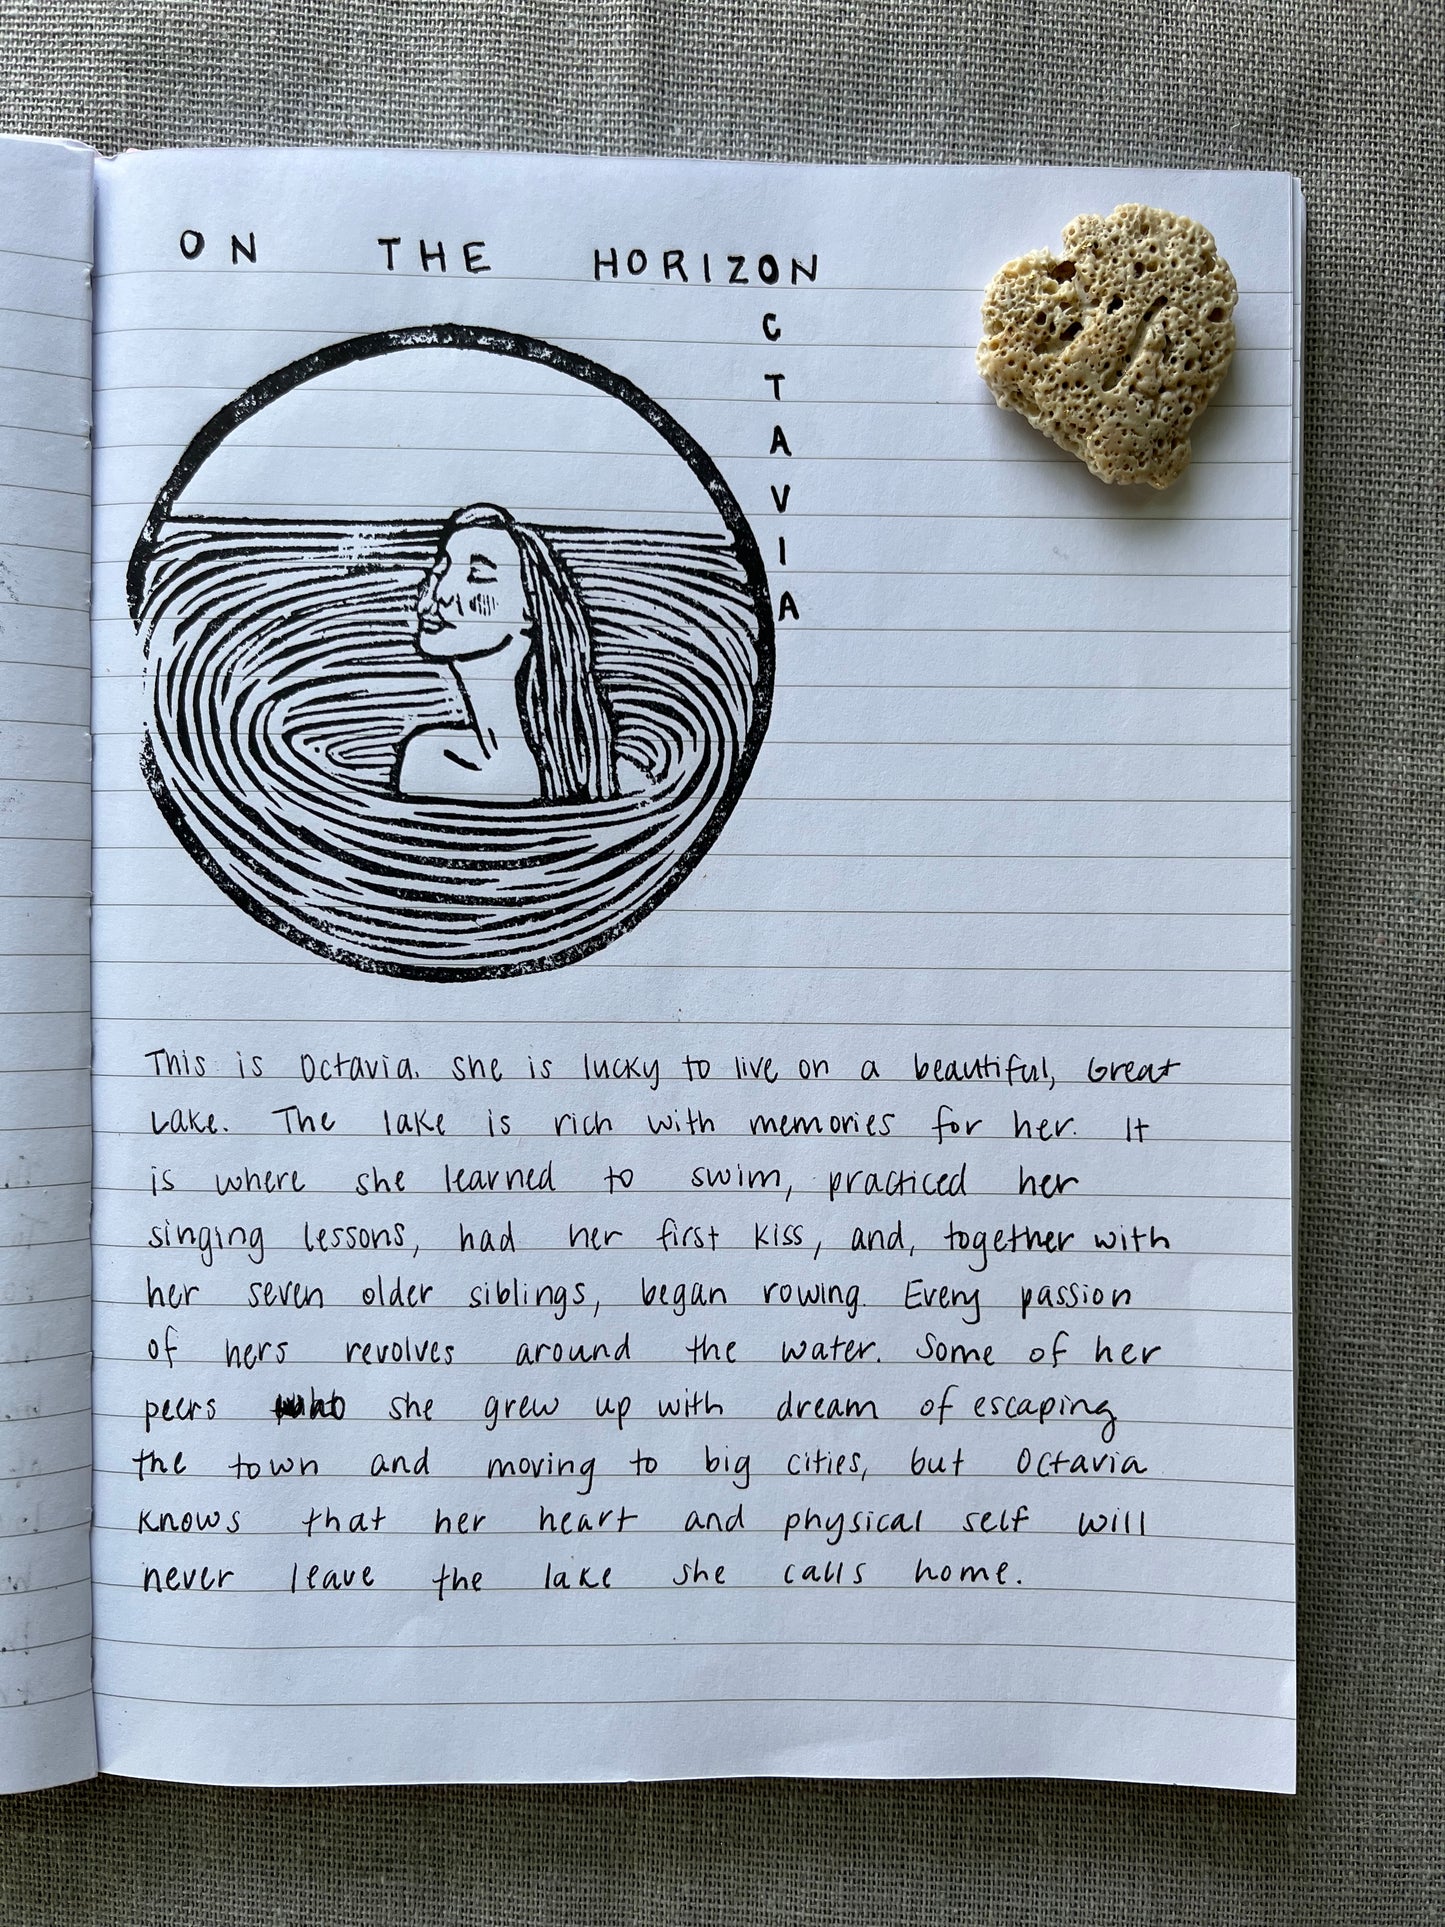 ON THE HORIZON
C
T
A
V
I
A
This is Octavia. She is lucky to live on a beautiful, Great
Lake. The lake is rich with memories for her. It
is where she learned to swim, practiced her
singing lessons, had her first kiss, and, together with
her seven older siblings, began rowing. Every passion
of hers revolves around the water. Some of her
peers she grew up with dream of escaping
the town and moving to big cities, but Octavia
knows that her heart and physical self will
never leave the lake she calls home.